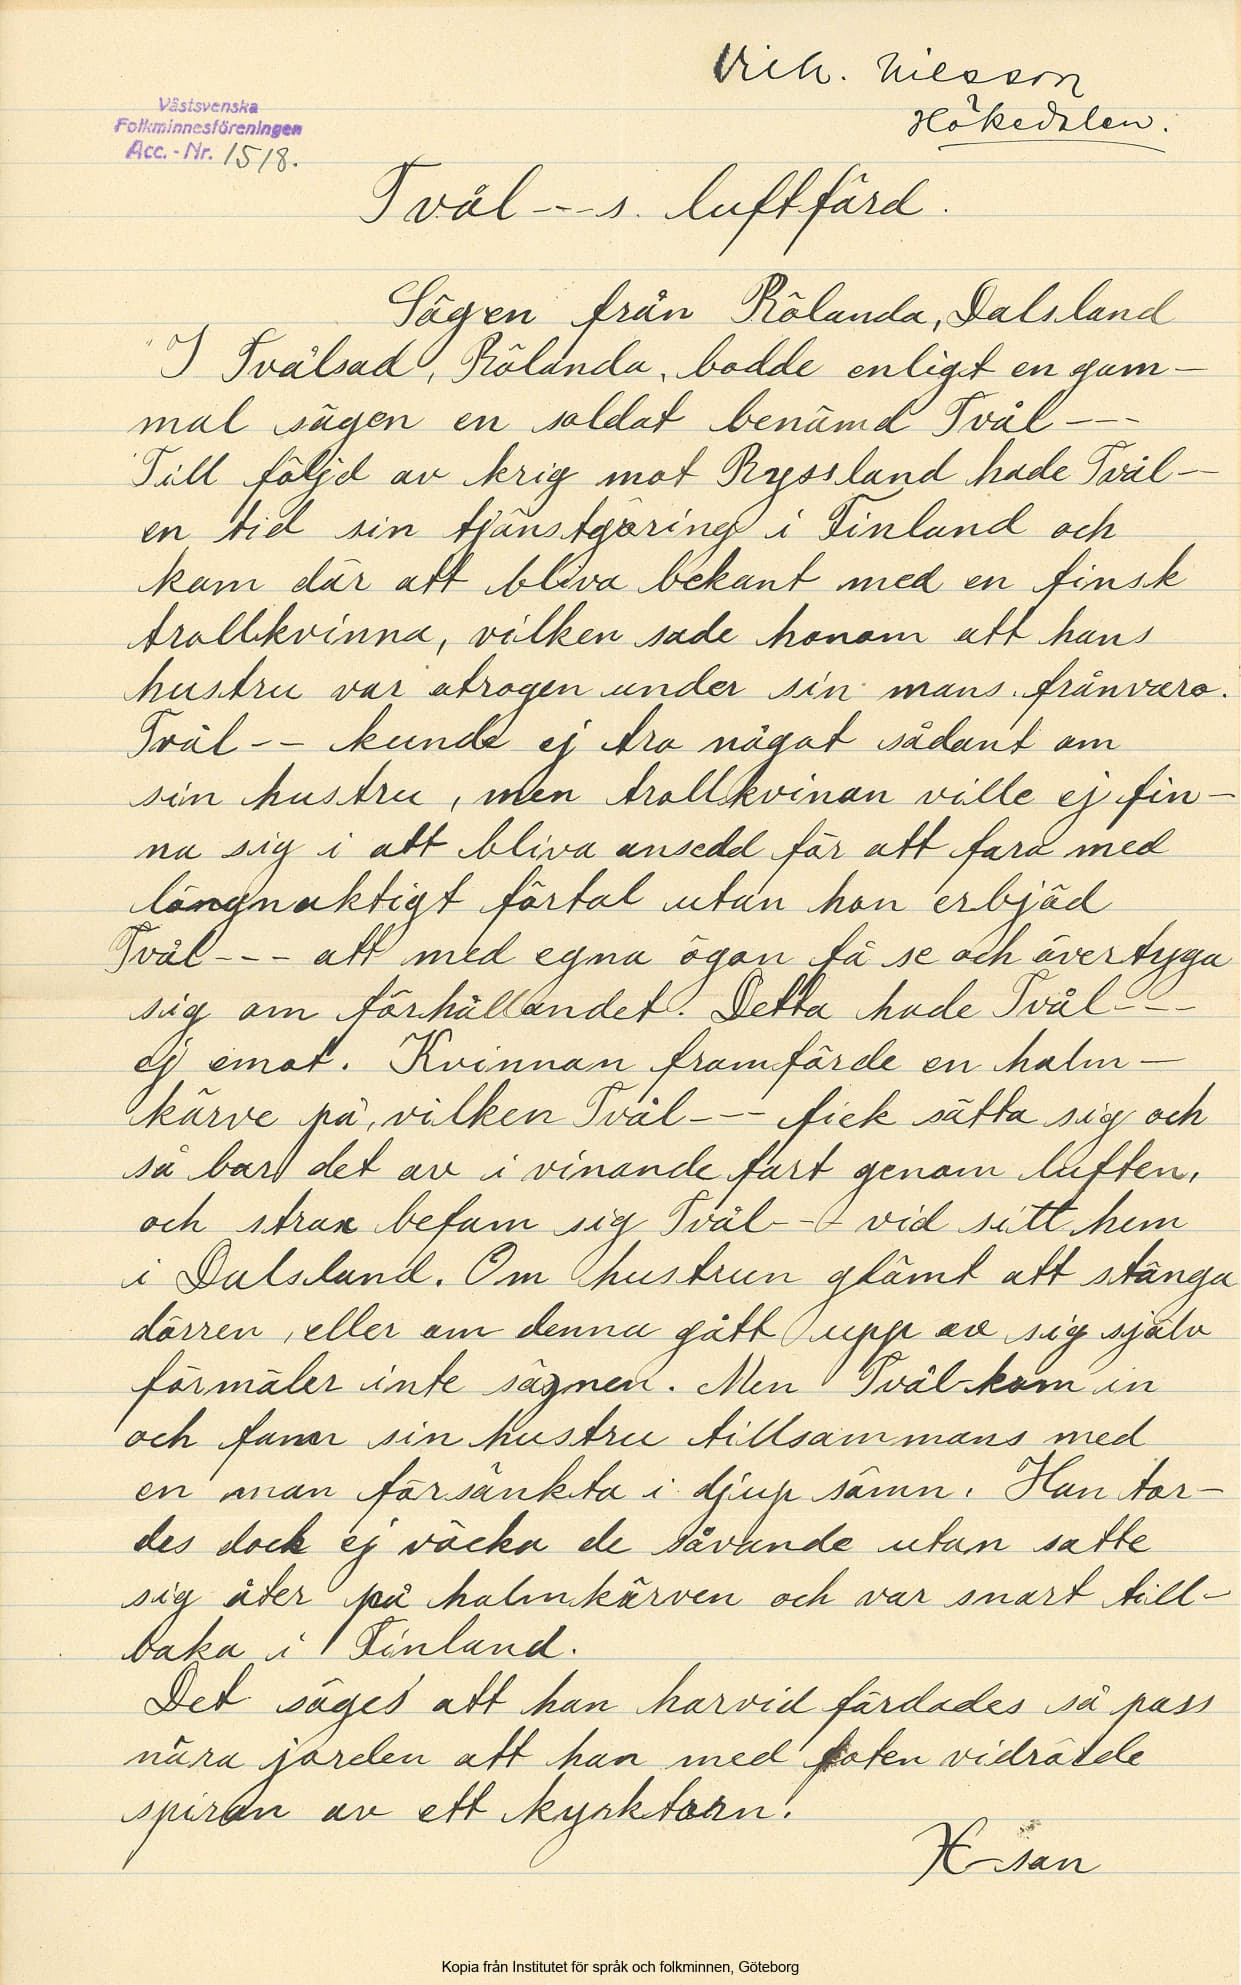 Vilh. Nilsson
Hökedalen.
Västsvenska
Folkminnesföreningen
Acc.-Nr. 1518.
Tvål---s. luftfärd.
Sägen från Rölanda, Dalsland
I Tvålsad, Rölanda, bodde enligt en gam-
mal sägen en soldat benämd Tvål---
Till följd av krig mot Ryssland hade Tvål-
en tid sin tjänstgöring i Finland och
kom där att bliva bekant med en finsk
trollkvinna, vilken sade honom att hans
hustru var otrogen under sin mans frånvaro.
Tvål-- kunde ej tro något sådant om
sin hustru, men trollkvinan ville ej fin-
na sig i att bliva ansedd för att fara med
lögnaktigt förtal utan hon erbjöd
Tvål--- att med egna ögon få se och övertyga
sig om förhållandet. Detta hade Tvål---
ej emot. Kvinnan framförde en halm-
kärve på, vilken Tvål--- fick sätta sig och
så bar det av i vinande fart genom luften,
och strax befann sig Tvål--- vid sitt hem
i Dalsland. Om hustrun glömt att stänga
dörren, eller om denna gått upp av sig själv
förmäler inte sägnen. Men Tvål-kom in
och fann sin hustru tillsammans med
en man försänkta i djup sömn. Han tor-
des dock ej väcka de sövande utan satte
sig åter på halmkärven och var snart till-
baka i Finland.
Det säges att han härvid färdades så pass
nära jorden att han med foten vidrörde
spiran av ett kyrktorn.
H-son
Kopia från Institutet för språk och folkminnen, Göteborg